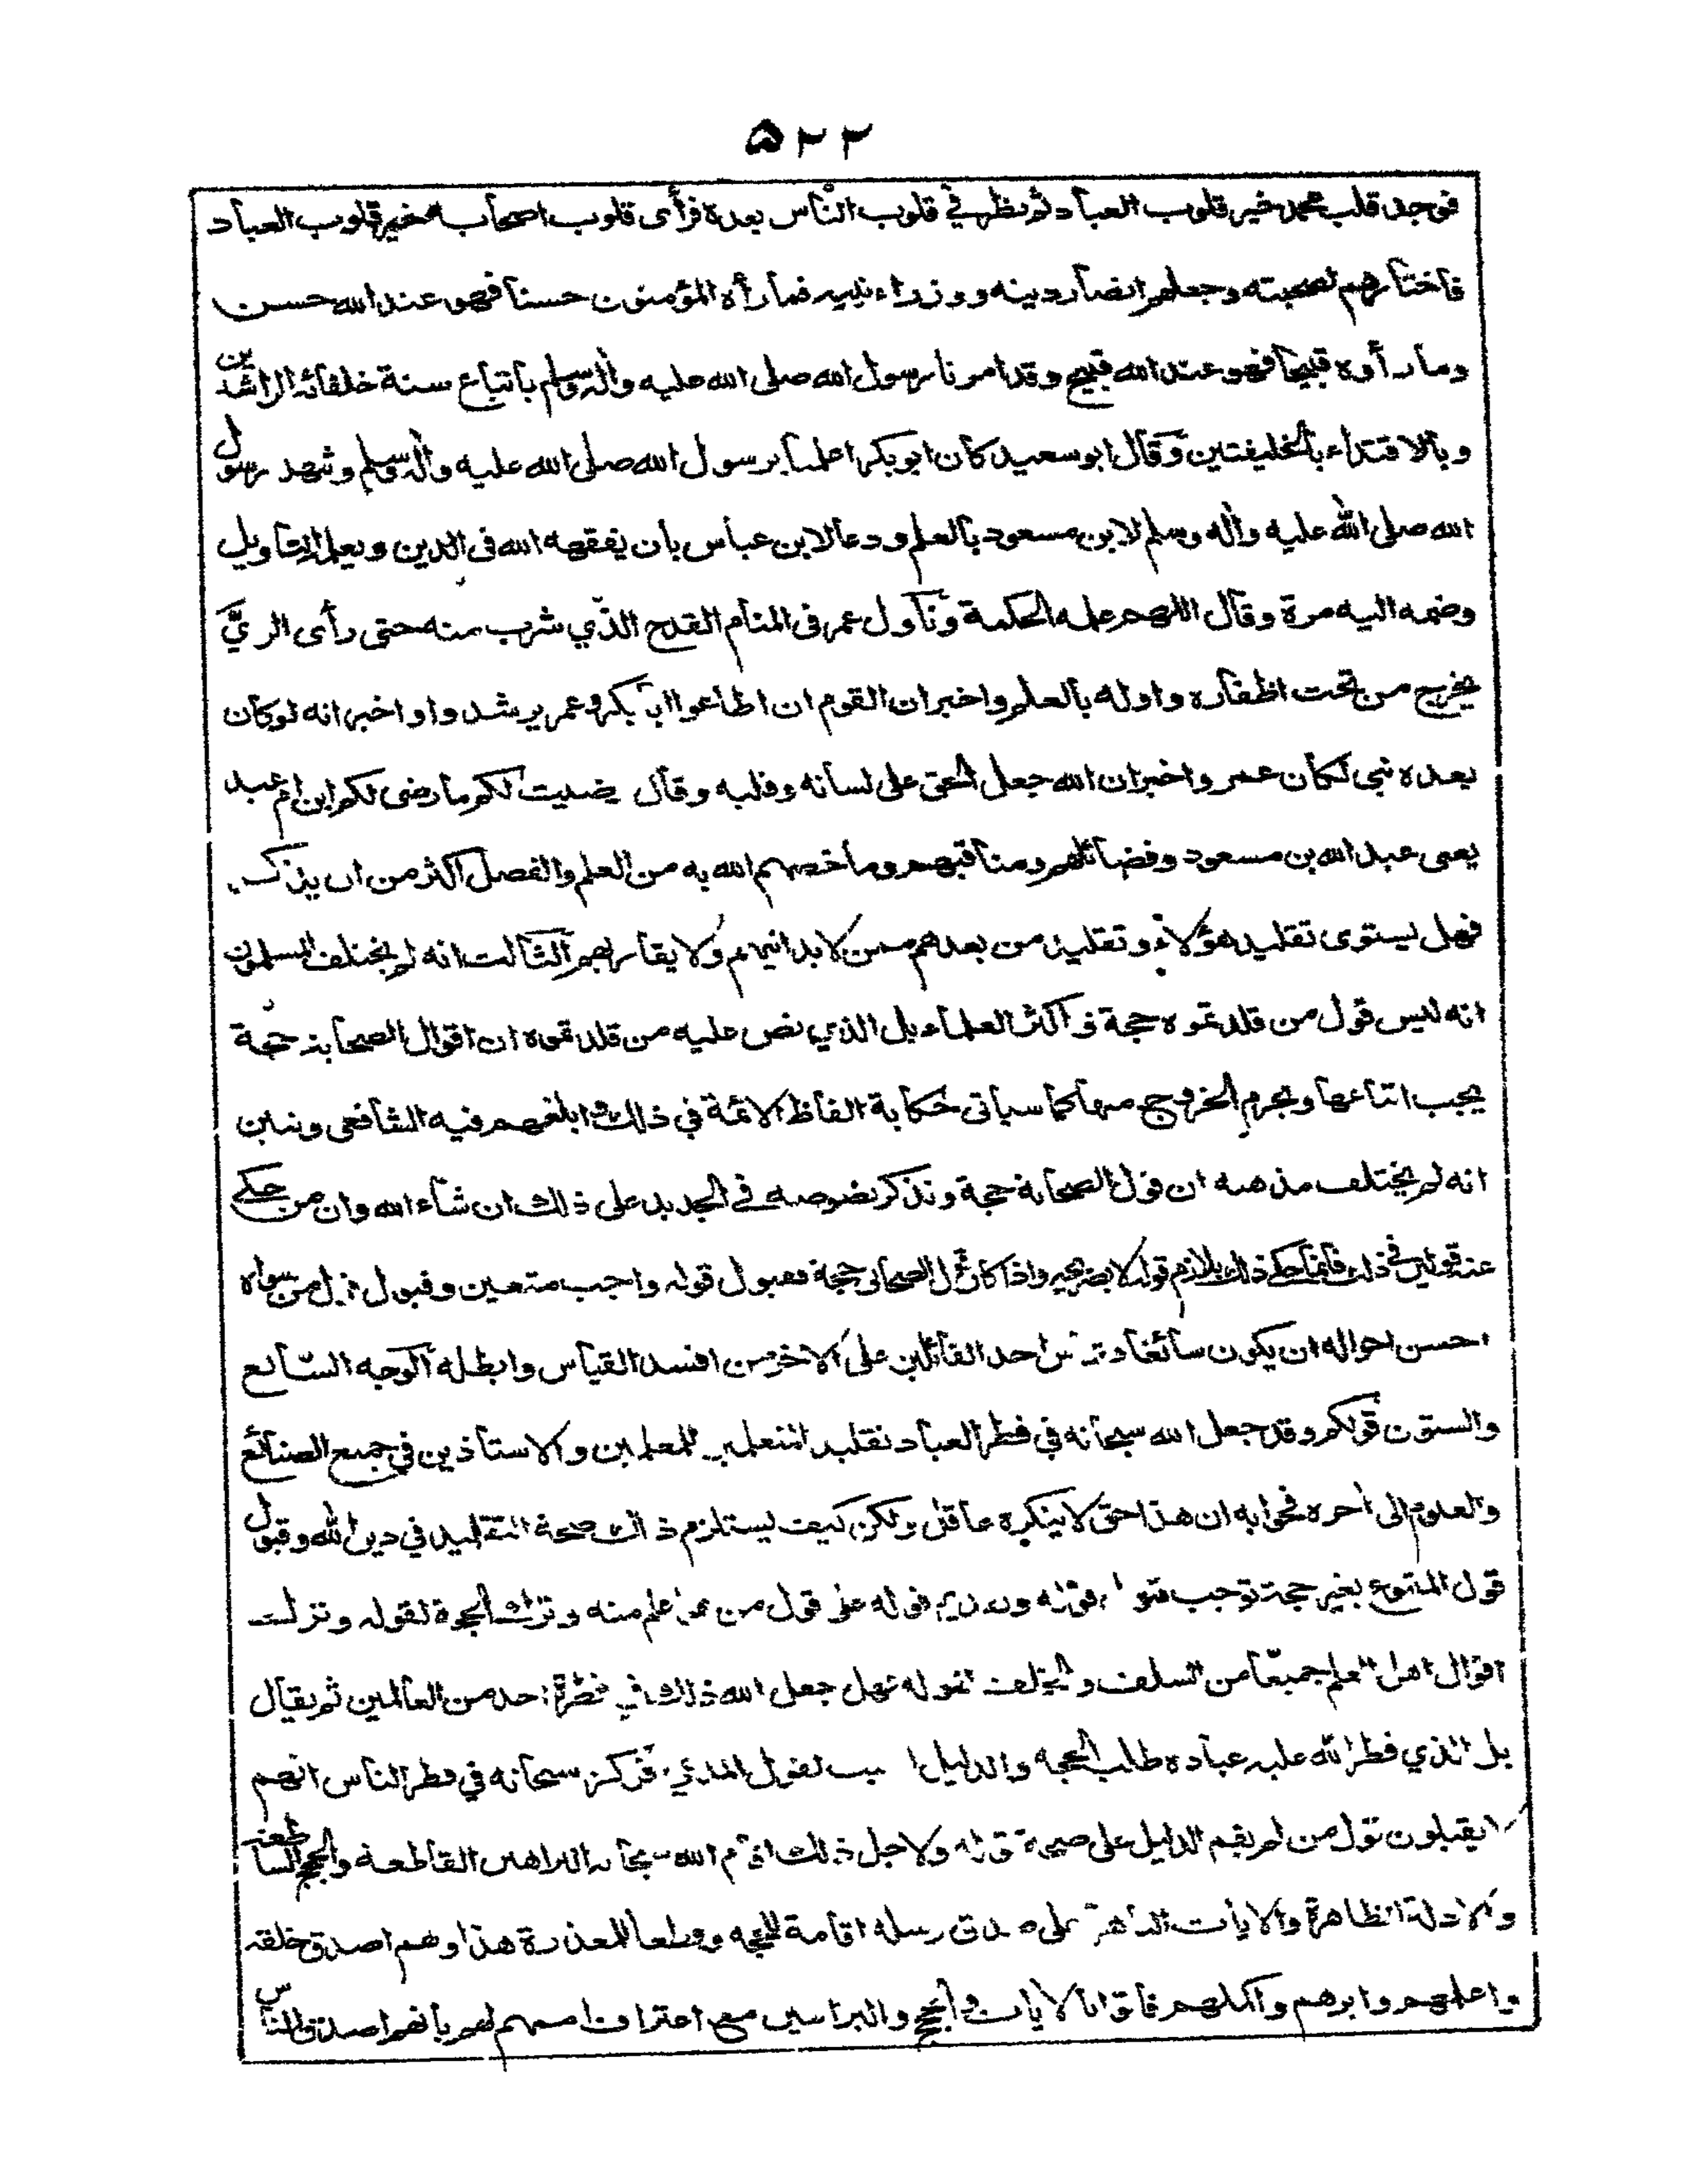 ۵۲۲
فوجد قلب محمد خير قلوب العباد ثم نظر في قلوب الناس بعده فرأى قلوب اصحابه خير قلوب العباد
فاختارهم لصحبته وجعلهم انصار دينه ووزراء نبيه فما رأه المؤمنون حسنا فهو عند الله حسن
وما رأوه قبيحا فهو عند الله قبيح وقد امرنا رسول الله صلى الله عليه واله وسلم باتباع سنة خلفائه الراشدين
وبالاقتداء بالخليفتين وقال ابو سعيد كان ابو بكر اعلمنا برسول الله صلى الله عليه واله وسلم وشهد رسول
الله صلى الله عليه واله وسلم لابن مسعود بالعلم ودعا لابن عباس بان يفقهه الله فى الدين ويعلمه التأويل
وضمه اليه مرة وقال اللهم علمه الحكمة وتأول عمر فى المنام القدح الذي شرب منه حتى رأى الريَّ
يخرج من تحت اظفاره واوله بالعلم واخبر ان القوم ان اطاعوا ابا بكر وعمر يرشدوا واخبر انه لو كان
بعده نبي لكان عمر واخبر ان الله جعل الحق على لسانه وقلبه وقال رضيت لكم ما رضى لكم ابن ام عبد
يعني عبد الله بن مسعود وفضائلهم ومناقبهم وما خصهم الله به من العلم والفضل اكثر من ان يذكر
فهل يستوى تقليد هؤلاء وتقليد من بعدهم ممن لا يدانيهم ولا يقاربهم الثالث انه لم يختلف المسلمون
انه ليس قول من قلدتموه حجة واكثر العلماء بل الذي نص عليه من قلدتموه ان اقوال الصحابة حجة
يجب اتباعها ويحرم الخروج منها كما سياتى حكاية الفاظ الائمة في ذلك وابلغهم فيه الشافعى ونبين
انه لم يختلف مذهبه ان قول الصحابة حجة ونذكر نصوصه في الجديد على ذلك ان شاء الله وان من حكے
عنه قولين في ذلك فانما حكے ذلك بلازم قوله لا بصريحه واذا كان قول الصحابى حجة فقبول قوله واجب متعين وقبول قول من سواه
احسن احواله ان يكون سائغا فقياس احد القائلين على الاخر من افسد القياس وابطله الوجه السابع
والستون قولكم وقد جعل الله سبحانه في فطر العباد تقليد المتعلمين للمعلمين والاستاذين في جميع الصنائع
والعلوم الى اخره فجوابه ان هذا حق لا ينكره عاقل ولكن كيف يستلزم ذلك صحة التقليد في دين الله وقبول
قول المتبوع بغير حجة توجب قبول قوله وتقديم قوله على قول من هو اعلم منه وترك الحجة لقوله وترك
اقوال اهل العلم جميعًا من السلف والخلف لقوله فهل جعل الله ذلك في فطرة احد من العالمين ثم يقال
بل الذي فطر الله عليه عباده طلب الحجه والدليل المثبت لقول المدعي فركز سبحانه في فطر الناس انهم
لا يقبلون قول من لم يقم الدليل على صحة قوله ولاجل ذلك اقام الله سبحانه البراهين القاطعة والحجج الساطعة
والادلة الظاهرة والايات الباهرة على صدق رسله اقامة للحجه وقطعا للمعذرة هذا وهم اصدق خلقه
واعلمهم وابرهم واكملهم فاتوا بالايات والحجج والبراهين مع اعتراف اممهم لهم بانهم اصدق الناس